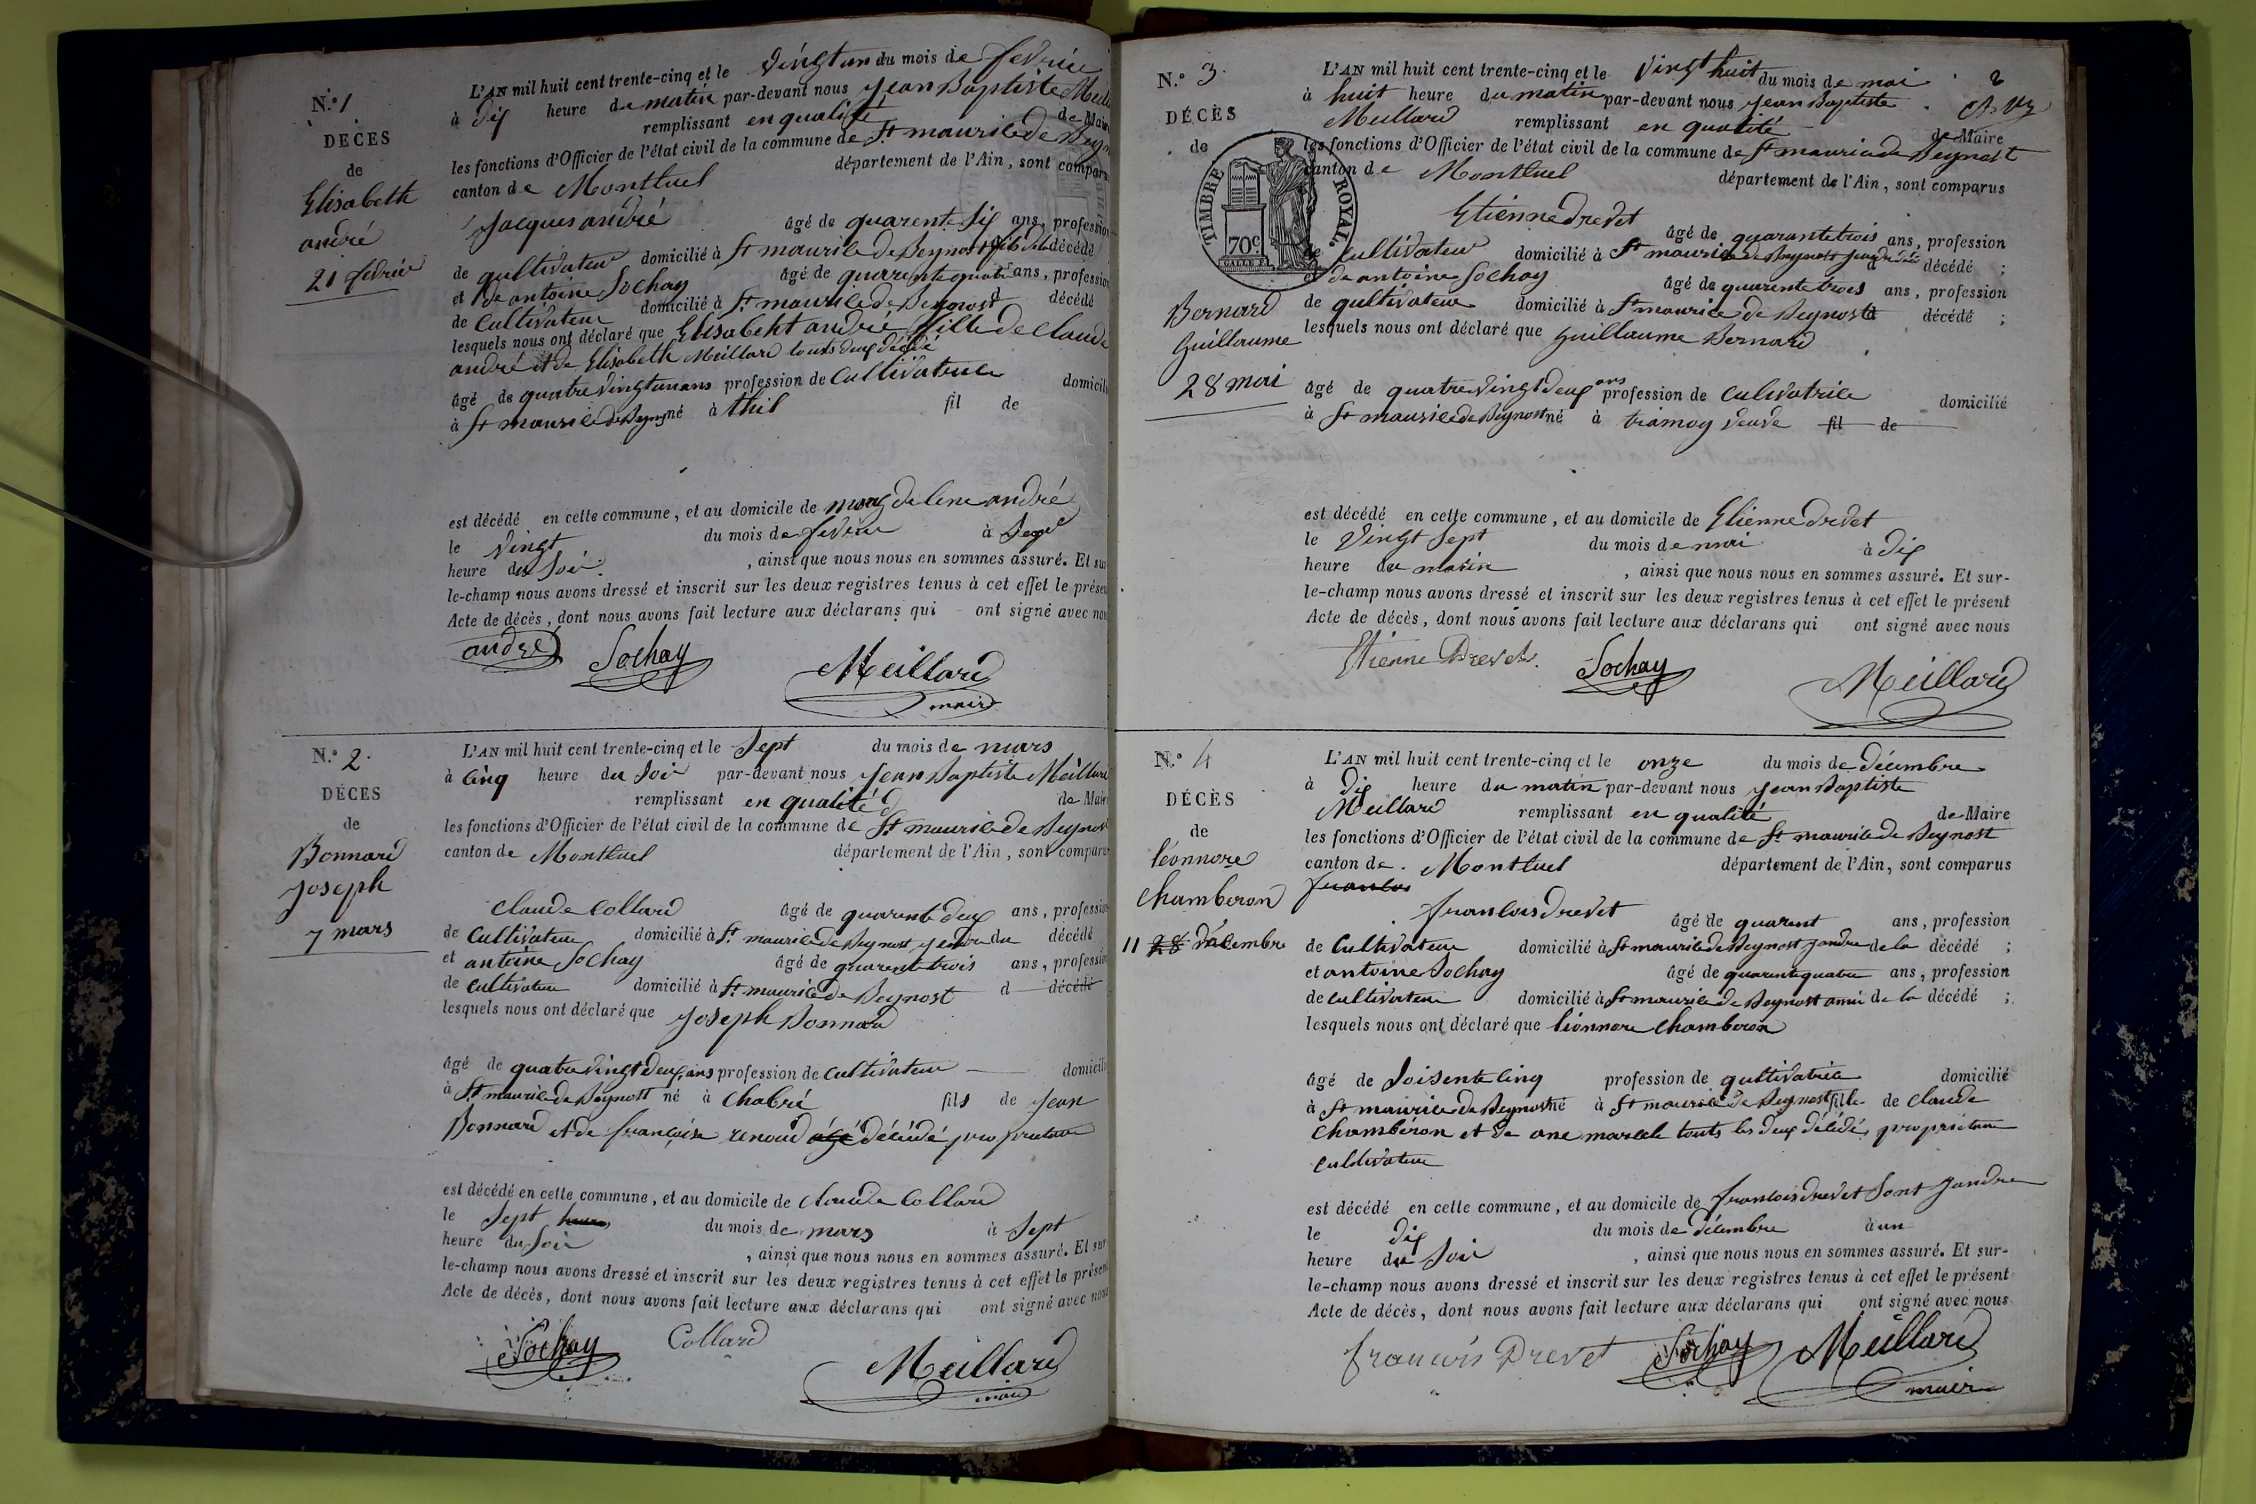 N.º 1
DÉCES
de
Elisabeth
andré
21 fevrier
L'AN mil huit cent trente-cinq et le vingt un du mois de fevrier
à dix heure du matin par-devant nous Jean Baptiste
remplissant en qualité de Maire
les fonctions d'Officier de l'état civil de la commune de St maurice de
canton de Montluel département de l'Ain, sont
Jacques andré âgé de quarente six ans, profession
de qultivateur domicilié à St maurice de Beynost décédé
et de antoine Sochay âgé de quarente quatre ans, profession
de Cultivateur domicilié à St maurice de Beynost d décédé
lesquels nous ont déclaré que Elisabeht andré fille de Claude
andré et de Elisabeth Meillard touts deux décédé
âgé de quatre vingt un ans profession de Cultivatrice
à St maurice de né à thil fil de
est décédé en cette commune, et au domicile de andré
le vingt du mois de fevrier à
heure du Soir , ainsi que nous nous en sommes assuré. Et sur
le-champ nous avons dressé et inscrit sur les deux registres tenus à cet effet le
Acte de décès, dont nous avons fait lecture aux déclarans qui ont signé avec
andré Sochay Meillard
maire
N.º 2.
DÉCES
de
Bonnard
Joseph
7 mars
L'AN mil huit cent trente-cinq et le Sept du mois de mars
à cinq heure du Soir par-devant nous Jean Baptiste Meillard
remplissant en qualité de Maire
les fonctions d'Officier de l'état civil de la commune de St maurice de Beynost
canton de Montluel département de l'Ain, sont
Claude Collard âgé de quarente deux ans, profession
de Cultivateur domicilié à St maurice de Beynost du décédé
et antoine Sochay âgé de quarent trois ans, profession
de cultivateur domicilié à St maurice de Beynost d décédé
lesquels nous ont déclaré que Joseph Bonnard
âgé de quatre vingt deux ans profession de Cultivateur
à St maurice de Beynost né à Chabré fils de Jean
Bonnard et de françoise renoud décédé proprietaire
est décédé en cette commune, et au domicile de Claude Collard
le Sept du mois de mars à Sept
heure du Soir , ainsi que nous nous en sommes assuré. Et sur
le-champ nous avons dressé et inscrit sur les deux registres tenus à cet effet le
Acte de décès, dont nous avons fait lecture aux déclarans qui ont signé avec nous
Sochay Collard Meillard
maire
N.º 3.
DÉCÈS
de
TIMBRE ROYAL.
70c
Bernard
Guillaume
28 mai
2
L'AN mil huit cent trente-cinq et le vingt huit du mois de mai
à huit heure du matin par-devant nous Jean Baptiste
Meillard remplissant en qualité de Maire
les fonctions d'Officier de l'état civil de la commune de St maurice de Beynost
canton de Montluel département de l'Ain, sont comparus
Etienne drevet âgé de quarante trois ans, profession
de Cultivateur domicilié à St maurice de Beynost décédé ;
et de antoine Sochay âgé de quarente trois ans, profession
de qultivateur domicilié à St maurice de Beynost d décédé ;
lesquels nous ont déclaré que Guillaume Bernard
âgé de quatre vingt deux ans profession de Culivatrice domicilié
à St maurice de Beynost né à tramoy veuve fil de
est décédé en cette commune, et au domicile de Etienne drevet
le vingt Sept du mois de mai à dix
heure du matin , ainsi que nous nous en sommes assuré. Et sur-
le-champ nous avons dressé et inscrit sur les deux registres tenus à cet effet le présent
Acte de décès, dont nous avons fait lecture aux déclarans qui ont signé avec nous
Etienne Drevet. Sochay Meillard
N.º 4
DÉCÈS
de
léonnore
Chamberon
11 28 décembre
L'AN mil huit cent trente-cinq et le onze du mois de décembre
à dix heure du matin par-devant nous Jean Baptiste
Meillard remplissant en qualité de Maire
les fonctions d'Officier de l'état civil de la commune de St maurice de Beynost
canton de Montluel département de l'Ain, sont comparus
francois
francois drevet âgé de quarent ans, profession
de Cultivateur domicilié à St maurice de Beynost gendre de la décédé ;
et antoine Sochay âgé de quarente quatre ans, profession
de cultivateur domicilié à St maurice de Beynost ami de la décédé ;
lesquels nous ont déclaré que léonnore Chamberon
âgé de Soisente cinq profession de qultivatrice domicilié
à St maurice de Beynost né à St maurice de Beynost fille de Claude
Chamberon et de ane marele touts les deux décédé propriétaire
cultivateur
est décédé en cette commune, et au domicile de francois drevet Sont gendre
le dix du mois de décembre à un
heure du Soir , ainsi que nous nous en sommes assuré. Et sur-
le-champ nous avons dressé et inscrit sur les deux registres tenus à cet effet le présent
Acte de décès, dont nous avons fait lecture aux déclarans qui ont signé avec nous
francois Drevet Sochay Meillard
maire